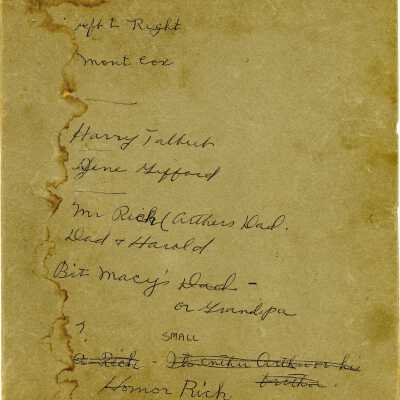 Left to Right
Mont Cox
Harry Talbut
Gene Gifford
Mr Rich (Arthers Dad.
Dad & Harold
Bit Macy's Dad -
or Grandpa
?
SMALL
A Rich - Its enther Arthur or his
brother.
Homor Rich